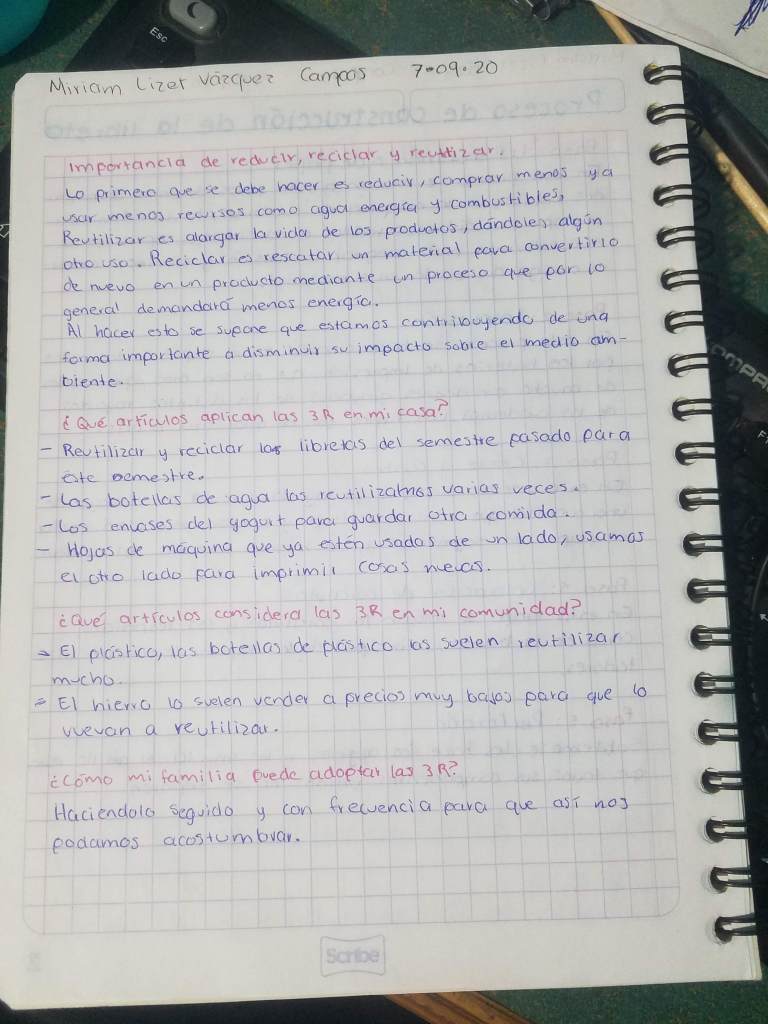 Esc
Miriam Lizet Vázquez Campos 7-09-20
Importancia de reducir, reciclar y reutilizar.
Lo primero que se debe hacer es reducir, comprar menos ya
usar menos recursos como agua energía y combustibles,
Reutilizar es alargar la vida de los productos, dándoles algún
otro uso. Reciclar es rescatar un material para convertirlo
de nuevo en un producto mediante un proceso que por lo
general demandará menos energía.
Al hacer esto se supone que estamos contribuyendo de una
forma importante a disminuir su impacto sobre el medio am-
biente.
¿Qué artículos aplican las 3R en mi casa?
- Reutilizar y reciclar las libretas del semestre pasado para
este semestre.
- Las botellas de agua las reutilizamos varias veces.
- Los envases del yogurt para guardar otra comida.
- Hojas de máquina que ya estén usadas de un lado, usamos
el otro lado para imprimir cosas nuevas.
¿Qué artículos considera las 3R en mi comunidad?
- El plástico, las botellas de plástico las suelen reutilizar
mucho.
- El hierro lo suelen vender a precios muy bajos para que lo
vuevan a reutilizar.
¿Cómo mi familia puede adoptar las 3R?
Haciendolo seguido y con frecuencia para que así nos
podamos acostumbrar.
Scribe